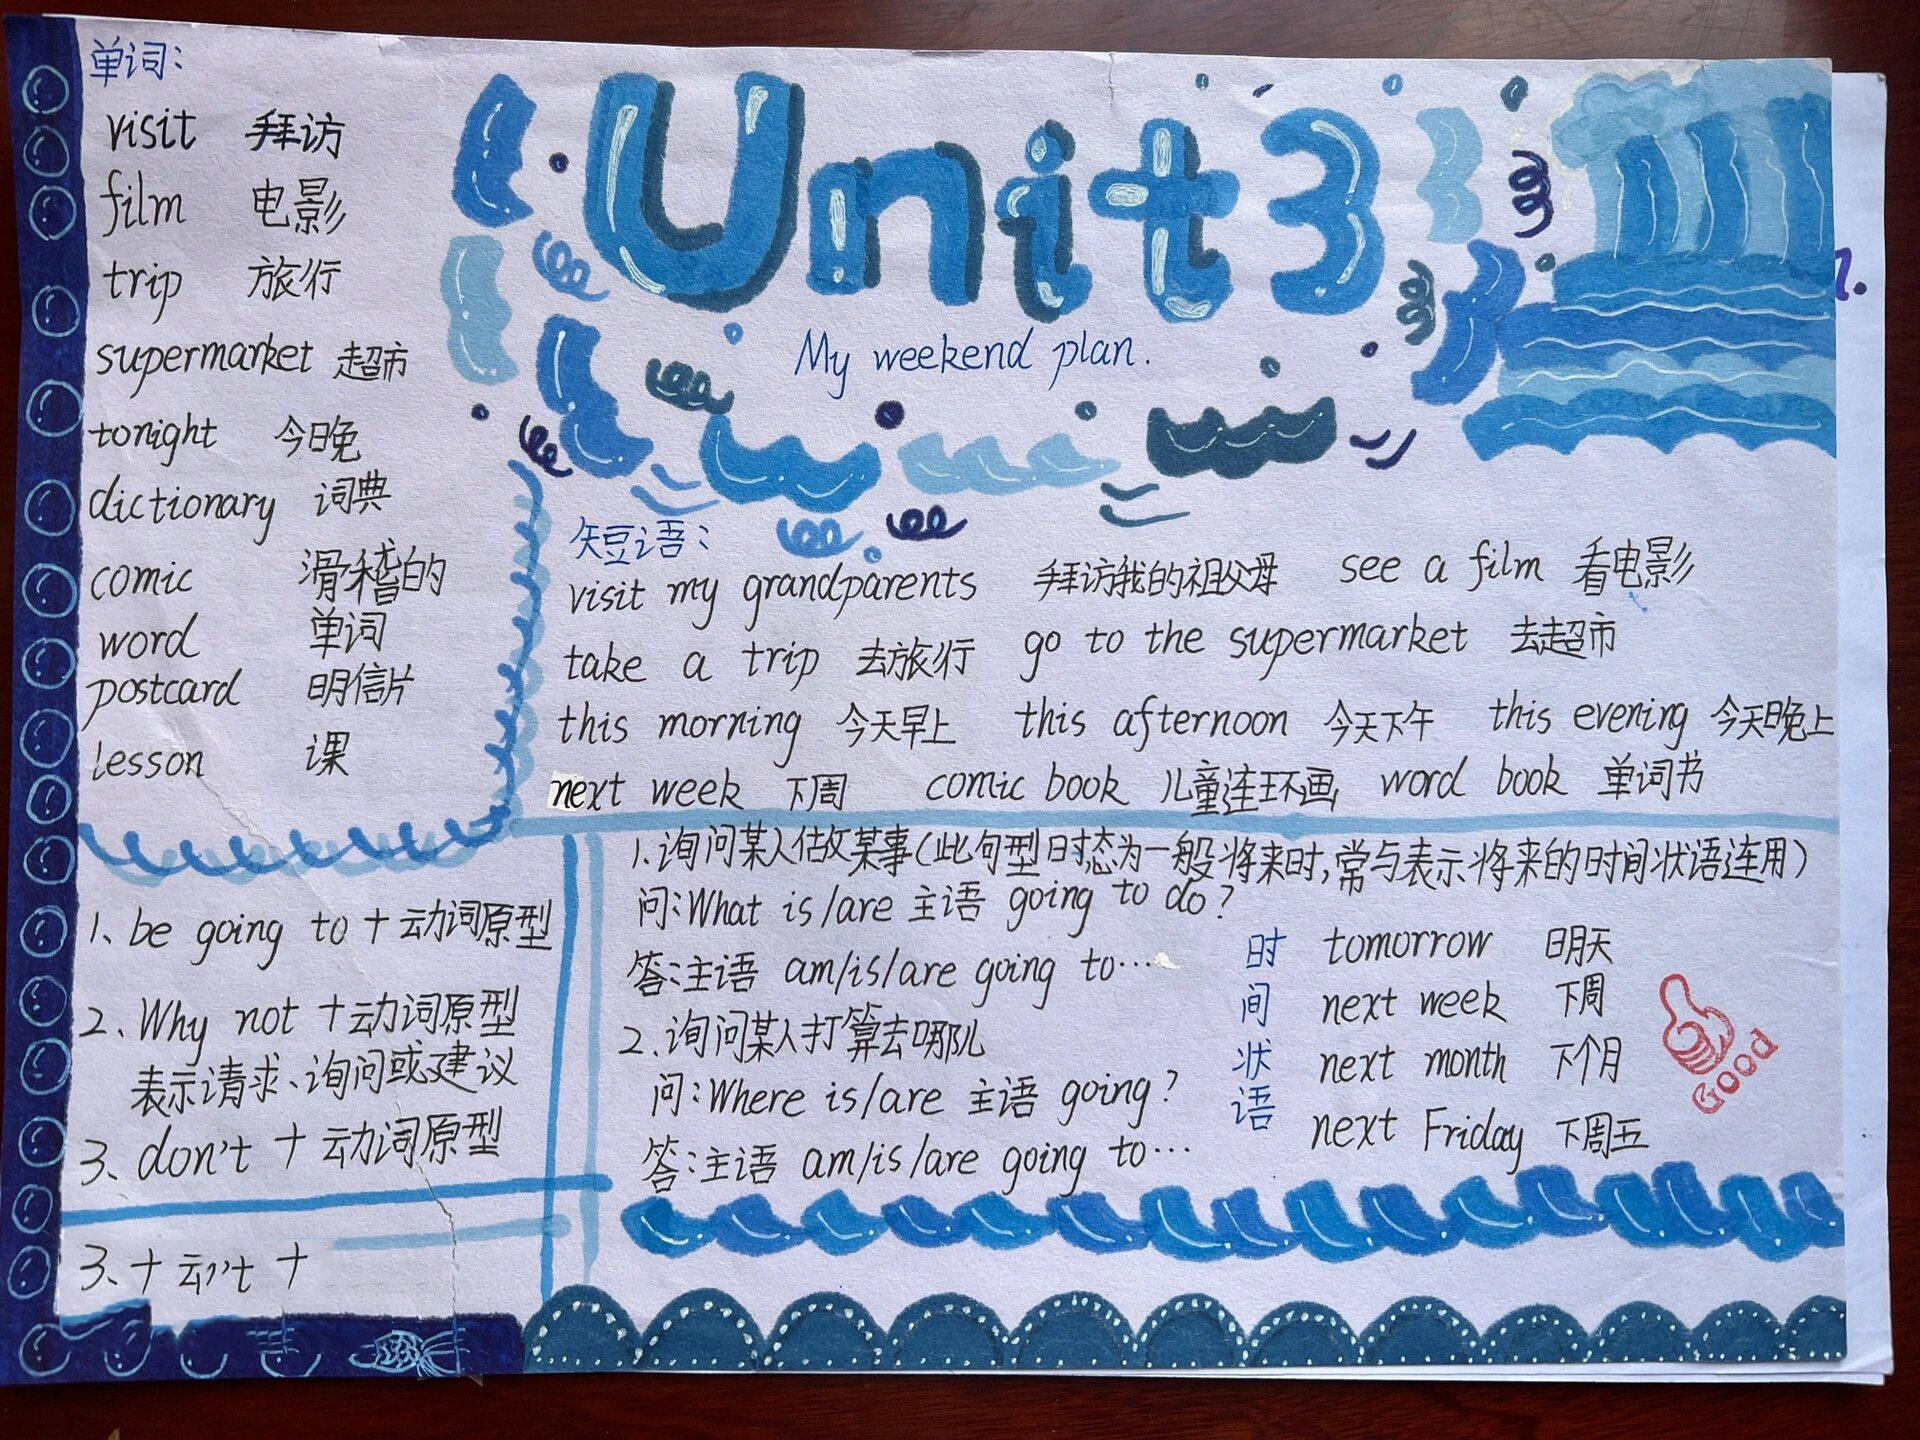 单词:
visit 拜访
film 电影
trip 旅行
supermarket 超市
tonight 今日晚
dictionary 词典
comic 滑稽的
word 单词
postcard 明信片
lesson 课
Unit 3
My weekend plan.
短语:
visit my grandparents 拜访我的祖父母 see a film 看电影
take a trip 去旅行 go to the supermarket 去超市
this morning 今天早上 this afternoon 今天下午 this evening 今天晚上
next week 下周 comic book 儿童连环画 word book 单词书
1、be going to + 动词原型
2、Why not + 动词原型
表示请求、询问或建议
3、don't + 动词原型
3、+ +
1.询问某人做某事(此句型时态为一般将来时,常与表示将来的时间状语连用)
问:What is/are 主语 going to do?
答:主语 am/is/are going to…
2.询问某人打算去哪儿
问:Where is/are 主语 going?
答:主语 am/is/are going to…
时间状语
tomorrow 明天
next week 下周
next month 下个月
next Friday 下周五
Good